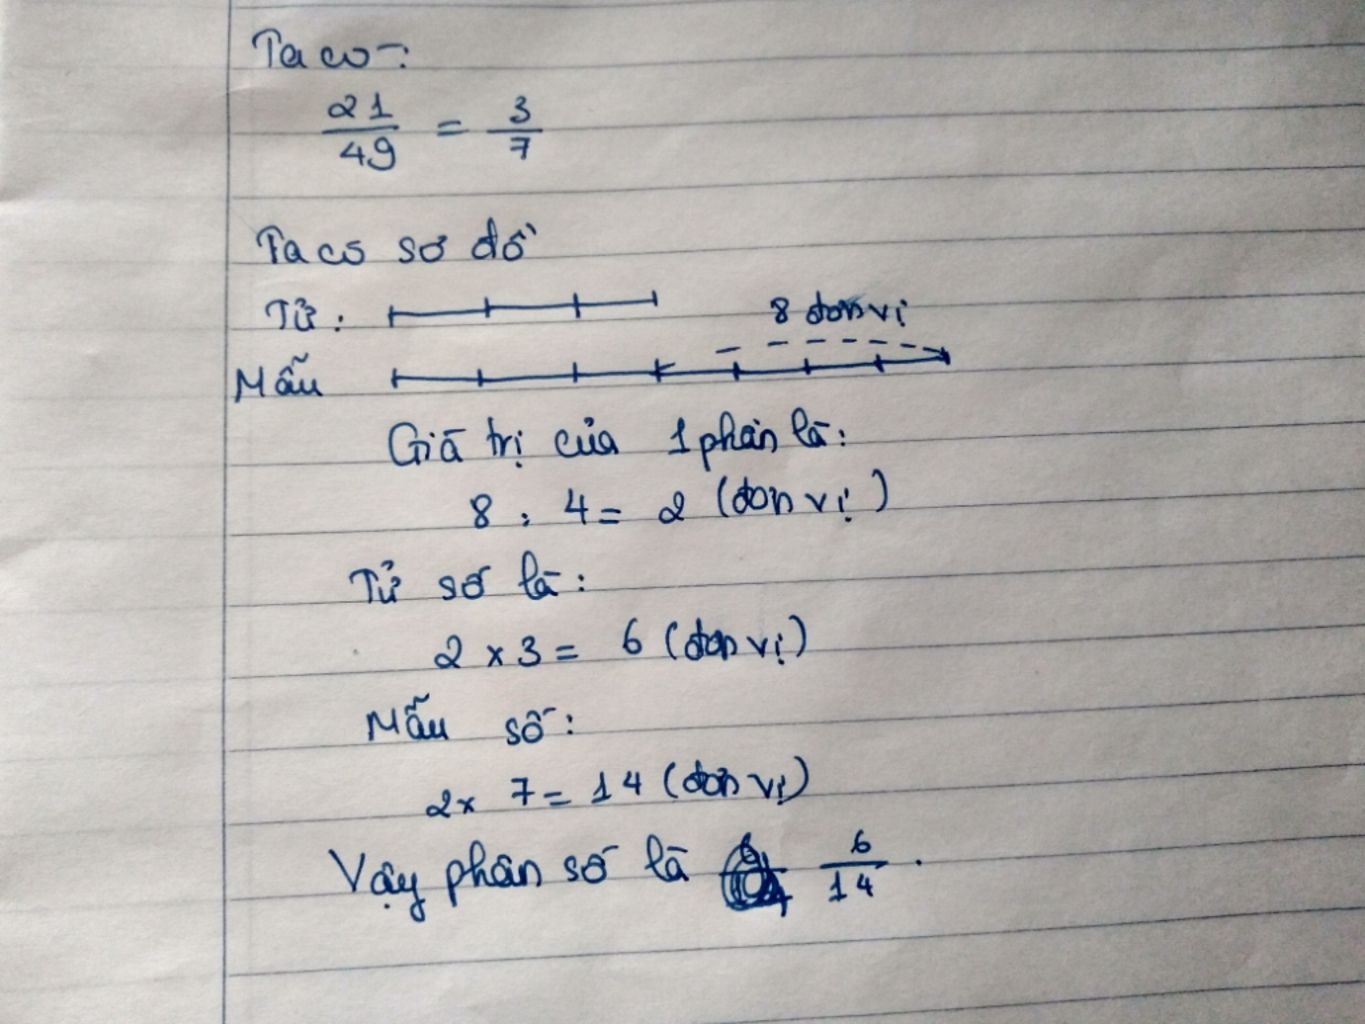 Ta có:
21/49 = 3/7
Ta có sơ đồ
Tử:
8 đơn vị
Mẫu
Giá trị của 1 phần là:
8 : 4 = 2 (đơn vị)
Tử số là:
2 x 3 = 6 (đơn vị)
Mẫu số:
2 x 7 = 14 (đơn vị)
Vậy phân số là 6/14.